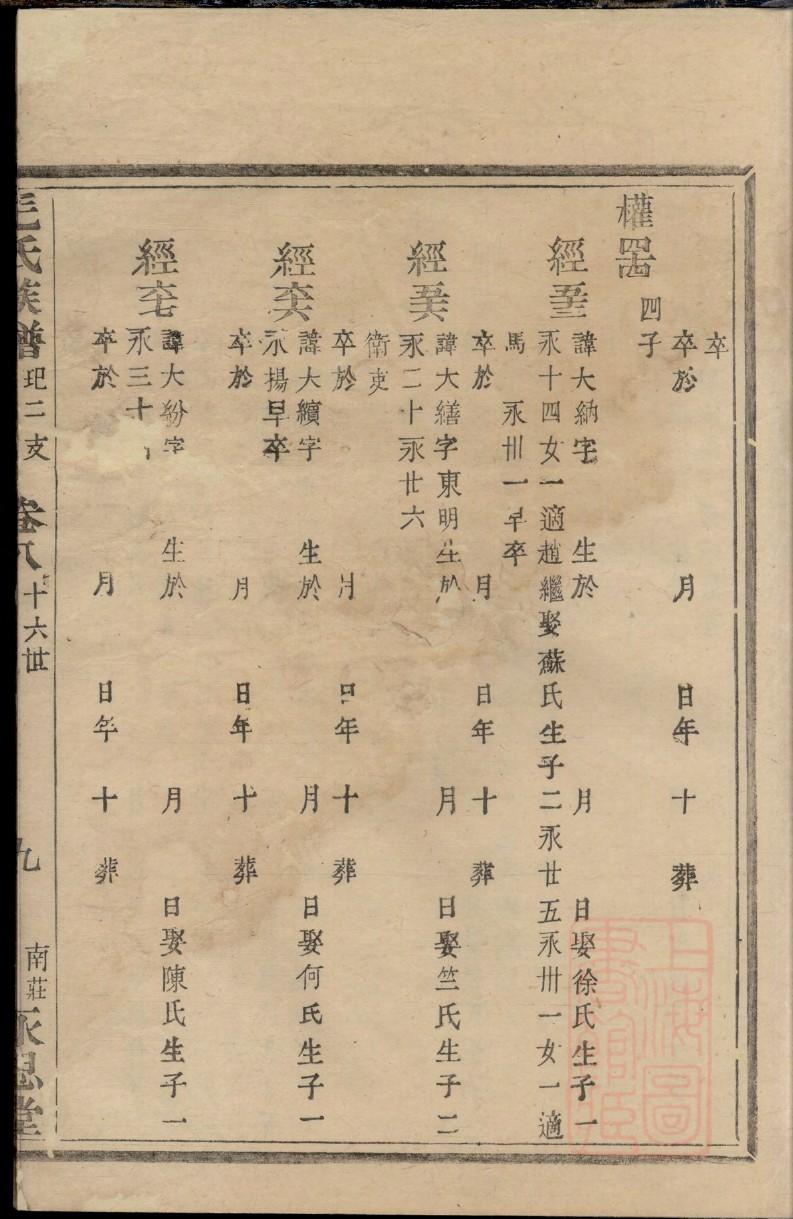 卒
卒於 月 日年 十 葬
權罟 四子
經 諱大納字 生於 月 日娶徐氏生子一
永十四女一適趙繼娶蘇氏生子二永廿五永卅一女一適
馬 永卅一早卒
卒於 月 日年 十 葬
經 諱大繕字東明生於 月 日娶竺氏生子二
永二十永廿六
衛吏
卒於 月 日年 十 葬
經 諱大纘字 生於 月 日娶何氏生子一
永揚早卒
卒於 月 日年 十 葬
經 諱大紛字 生於 月 日娶陳氏生子一
永三十
卒於 月 日年 十 葬
毛氏族譜 玘二支 卷八 十六世 九 南莊永思堂
上海圖書館藏